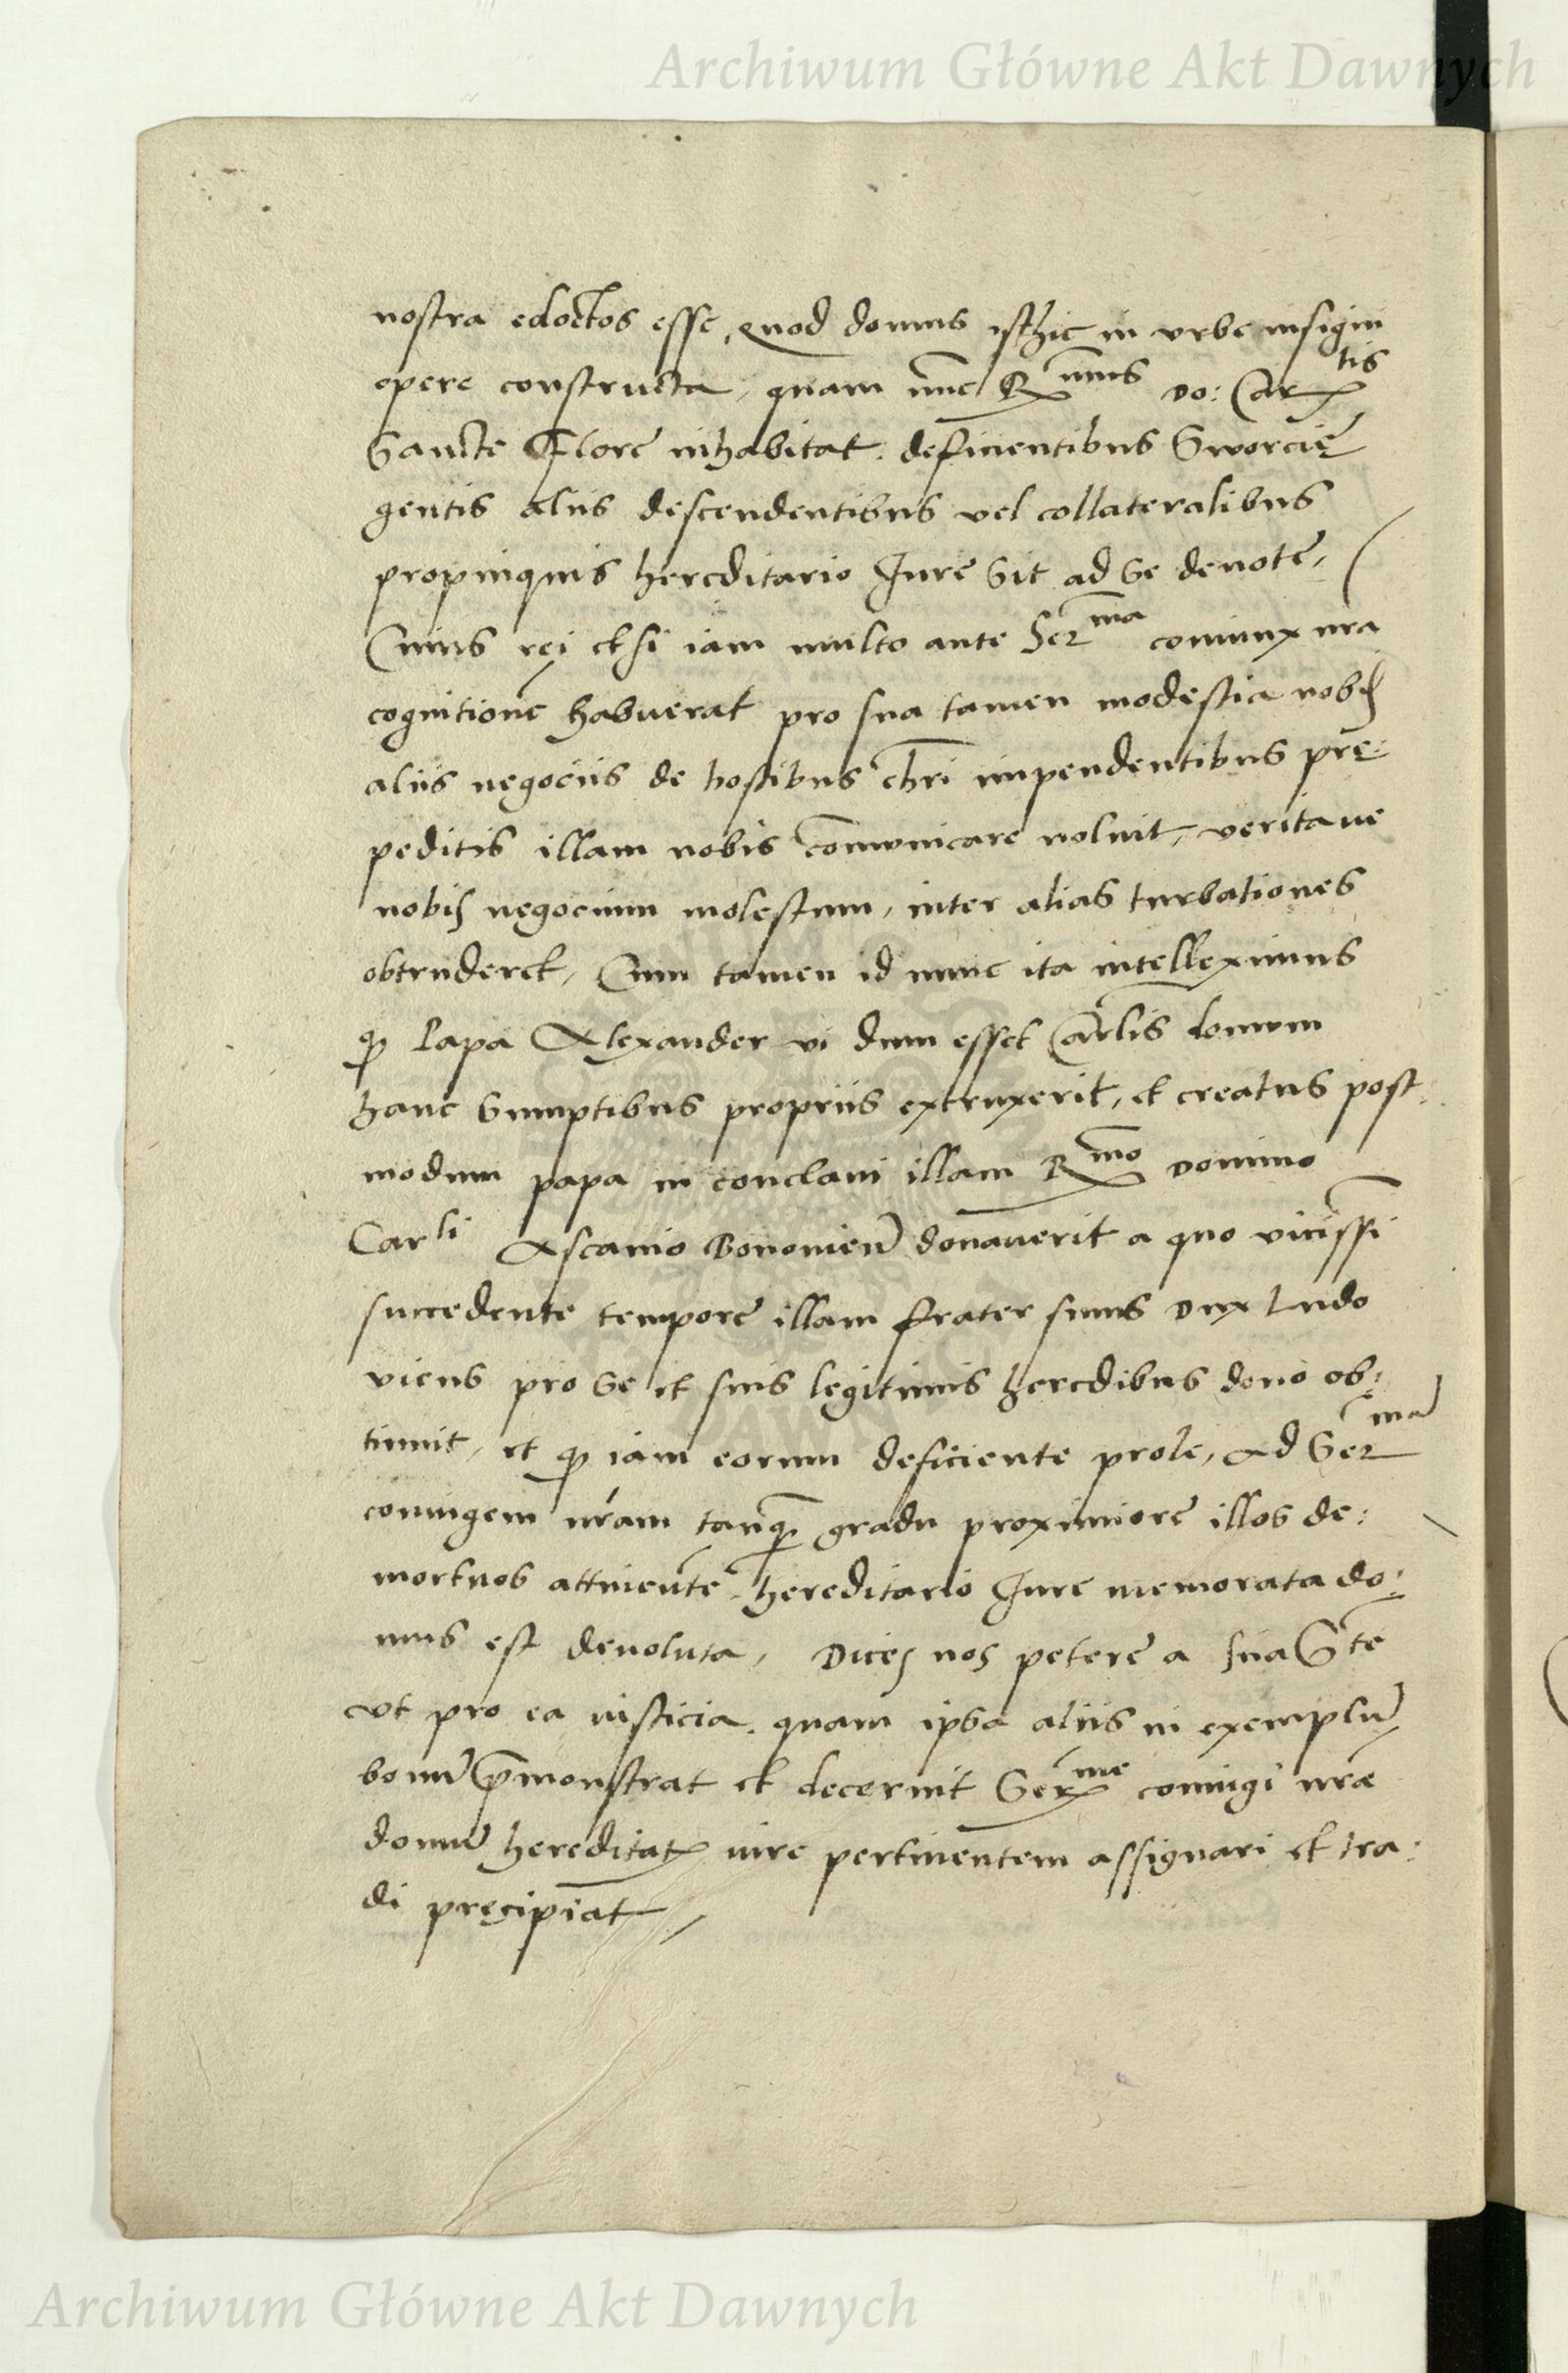 Archiwum Główne Akt Dawnych
nostra edoctos esse, quod domus isthic in vrbe insigni
opere constructa, quam nũc R̃mus do: Carlis
Sancte Flore inhabitat, deficientibus Sworcie
gentis aliis descendentibus vel collateralibus
propinquis hereditario Iure sit ad se deuote,
Cuius rei etsi iam multo ante Ser̃ma coniunx nra
cognitionẽ habuerat pro sua tamen modestia nobis
aliis negociis de hostibus chri impendentibus prę:
peditis illam nobis cõmunicare noluit, verita ne
nobis negocium molestum, inter alias turbationes
obtruderet, Cum tamen id nunc ita intelleximus
ꝙ Papa Alexander vi dum esset Carlis domum
hanc sumptibus propriis extruxerit, et creatus post:
modum papa in conclaui illam R̃mo domino
Carli Ascanio Bononień donauerit a quo vicissi
succedente tempore illam frater suus dux Ludo
vicus pro se et suis legitimis heredibus dono ob:
tinuit, et ꝙ iam eorum deficiente prole, ad Ser̃ma
coniugem nr̃am tanꝙ gradu proximiore illos de:
mortuos attinentẽ hereditario Iure memorata do:
mus est deuoluta, Dices nos petere a sua Gte
vt pro ea iusticia, quam ipsa aliis in exemplũ
bonũ p̃monstrat et decernit Ser̃me coniugi nræ
domũ hereditat iure pertinentem assignari et tra:
di pręcipiat,
Archiwum Główne Akt Dawnych